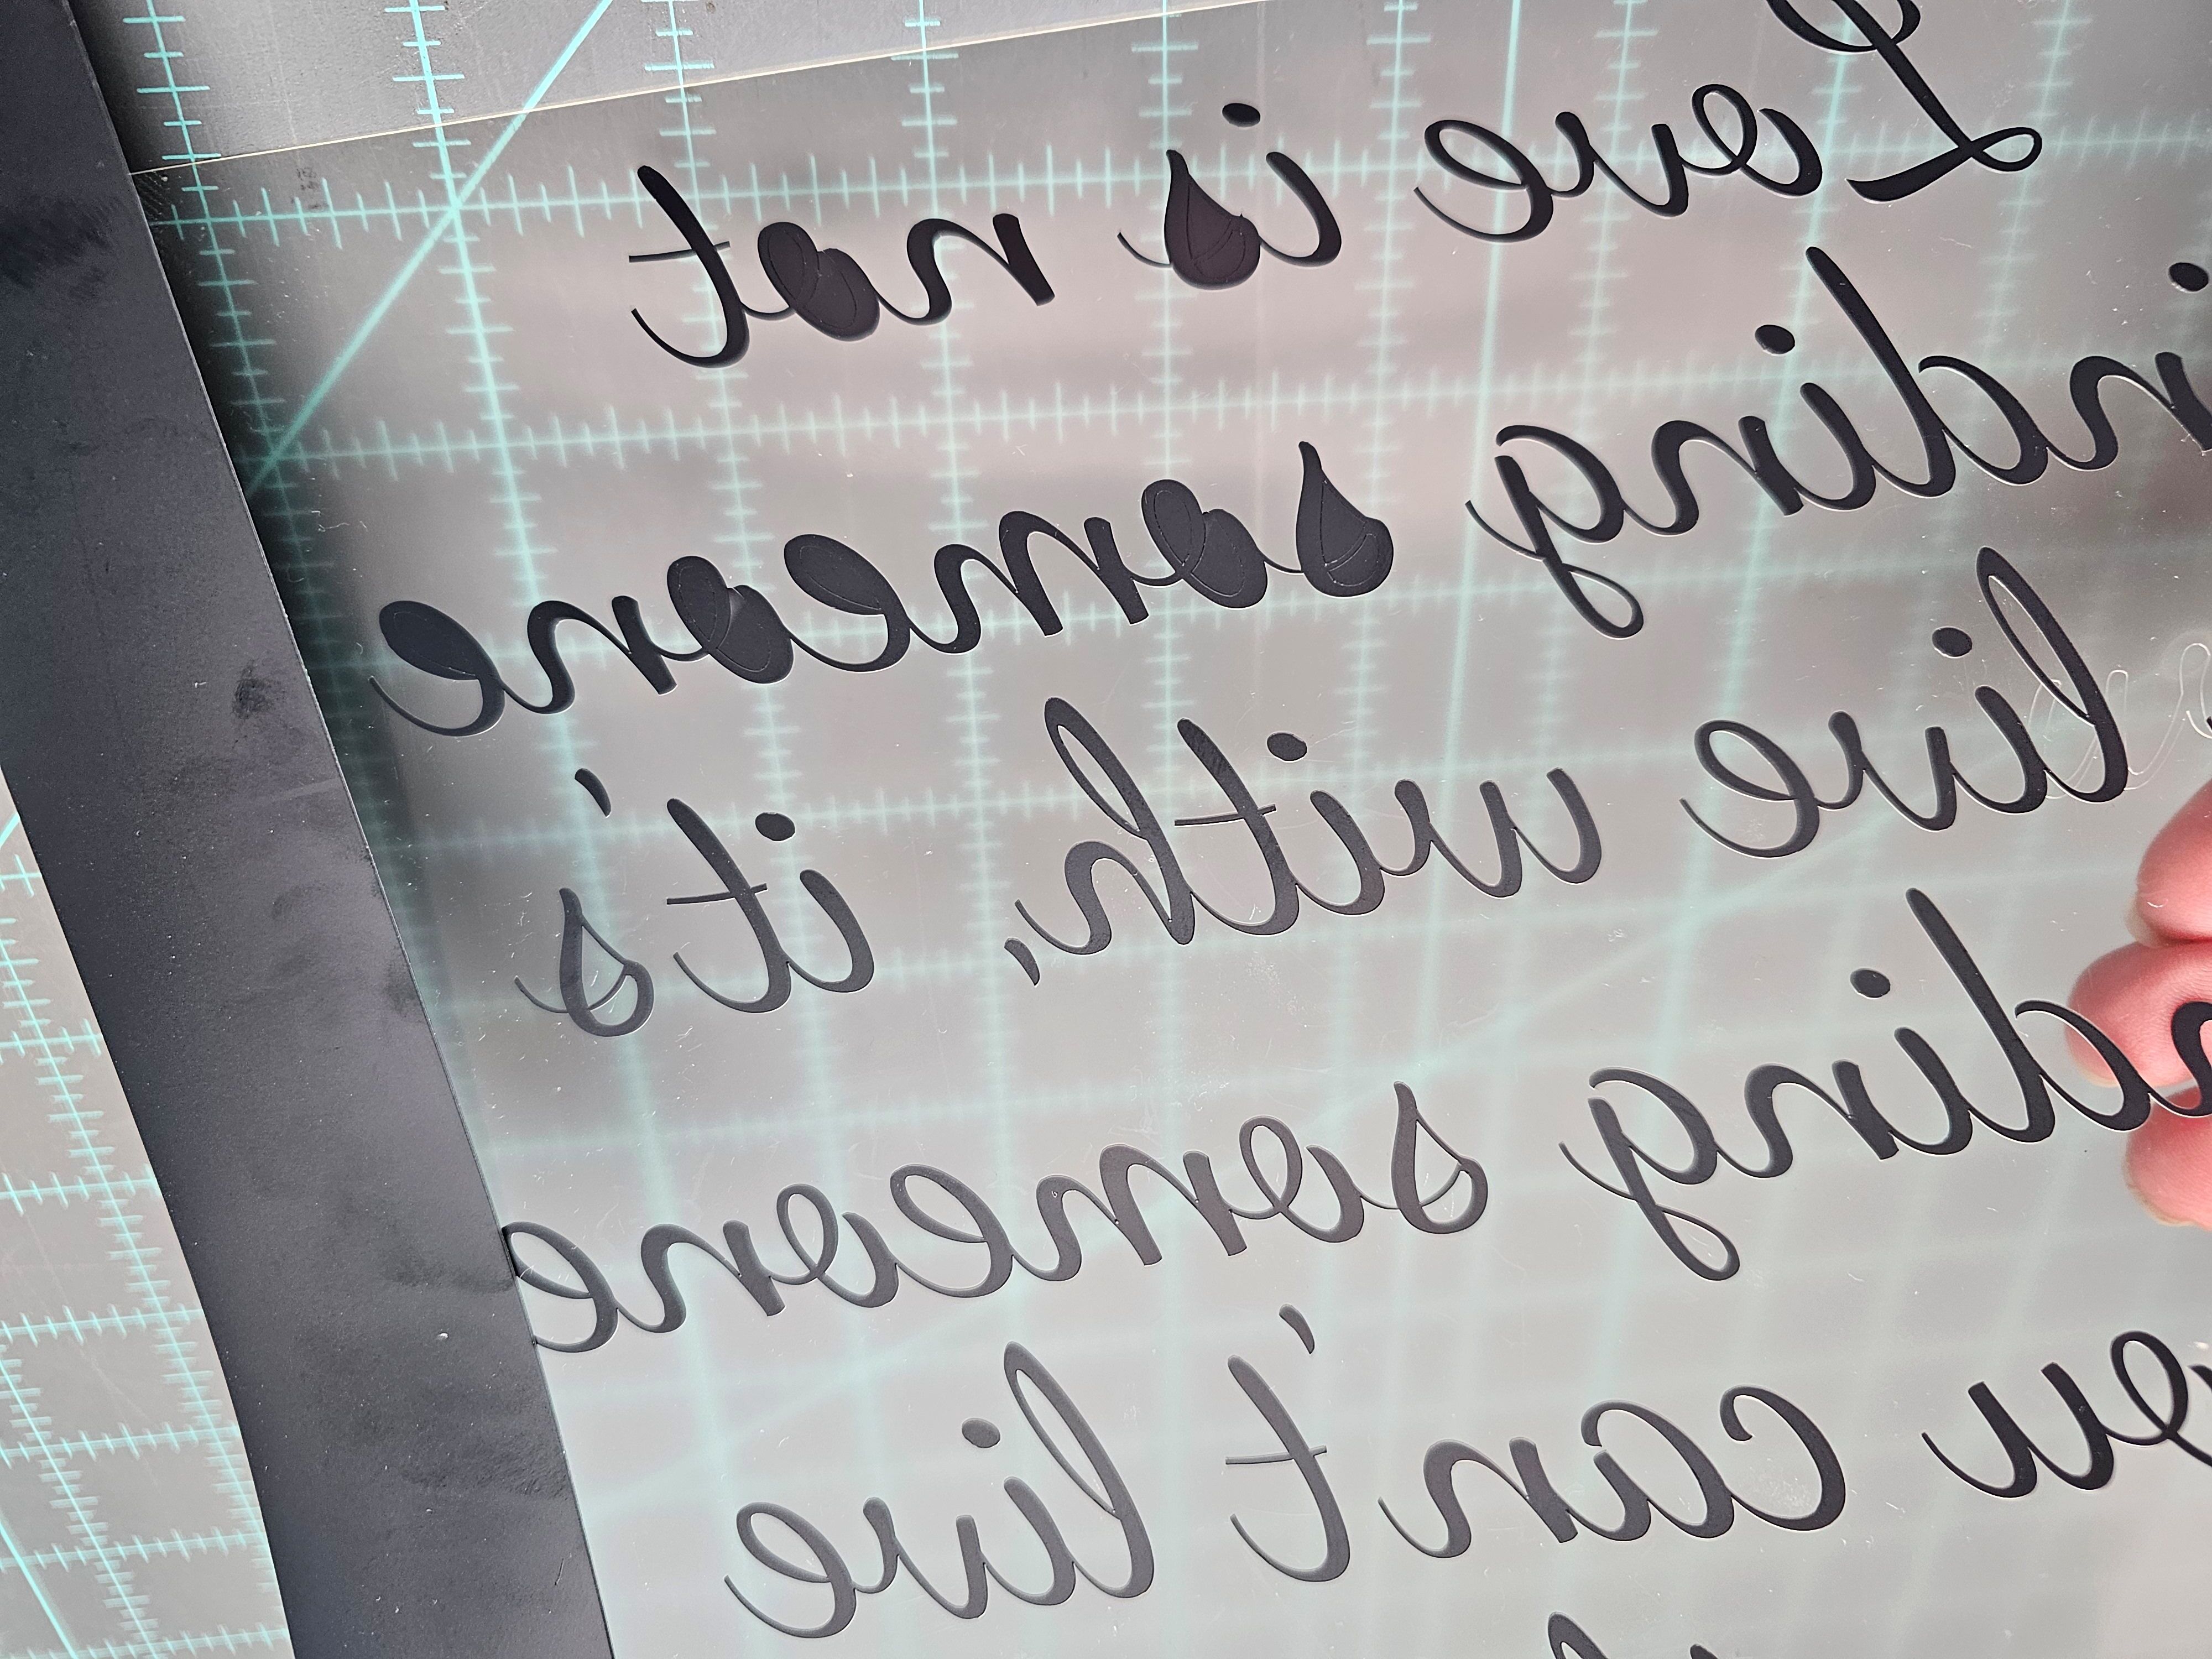 Love is not
nding someone
live with, it's
ding someone
ou can't live